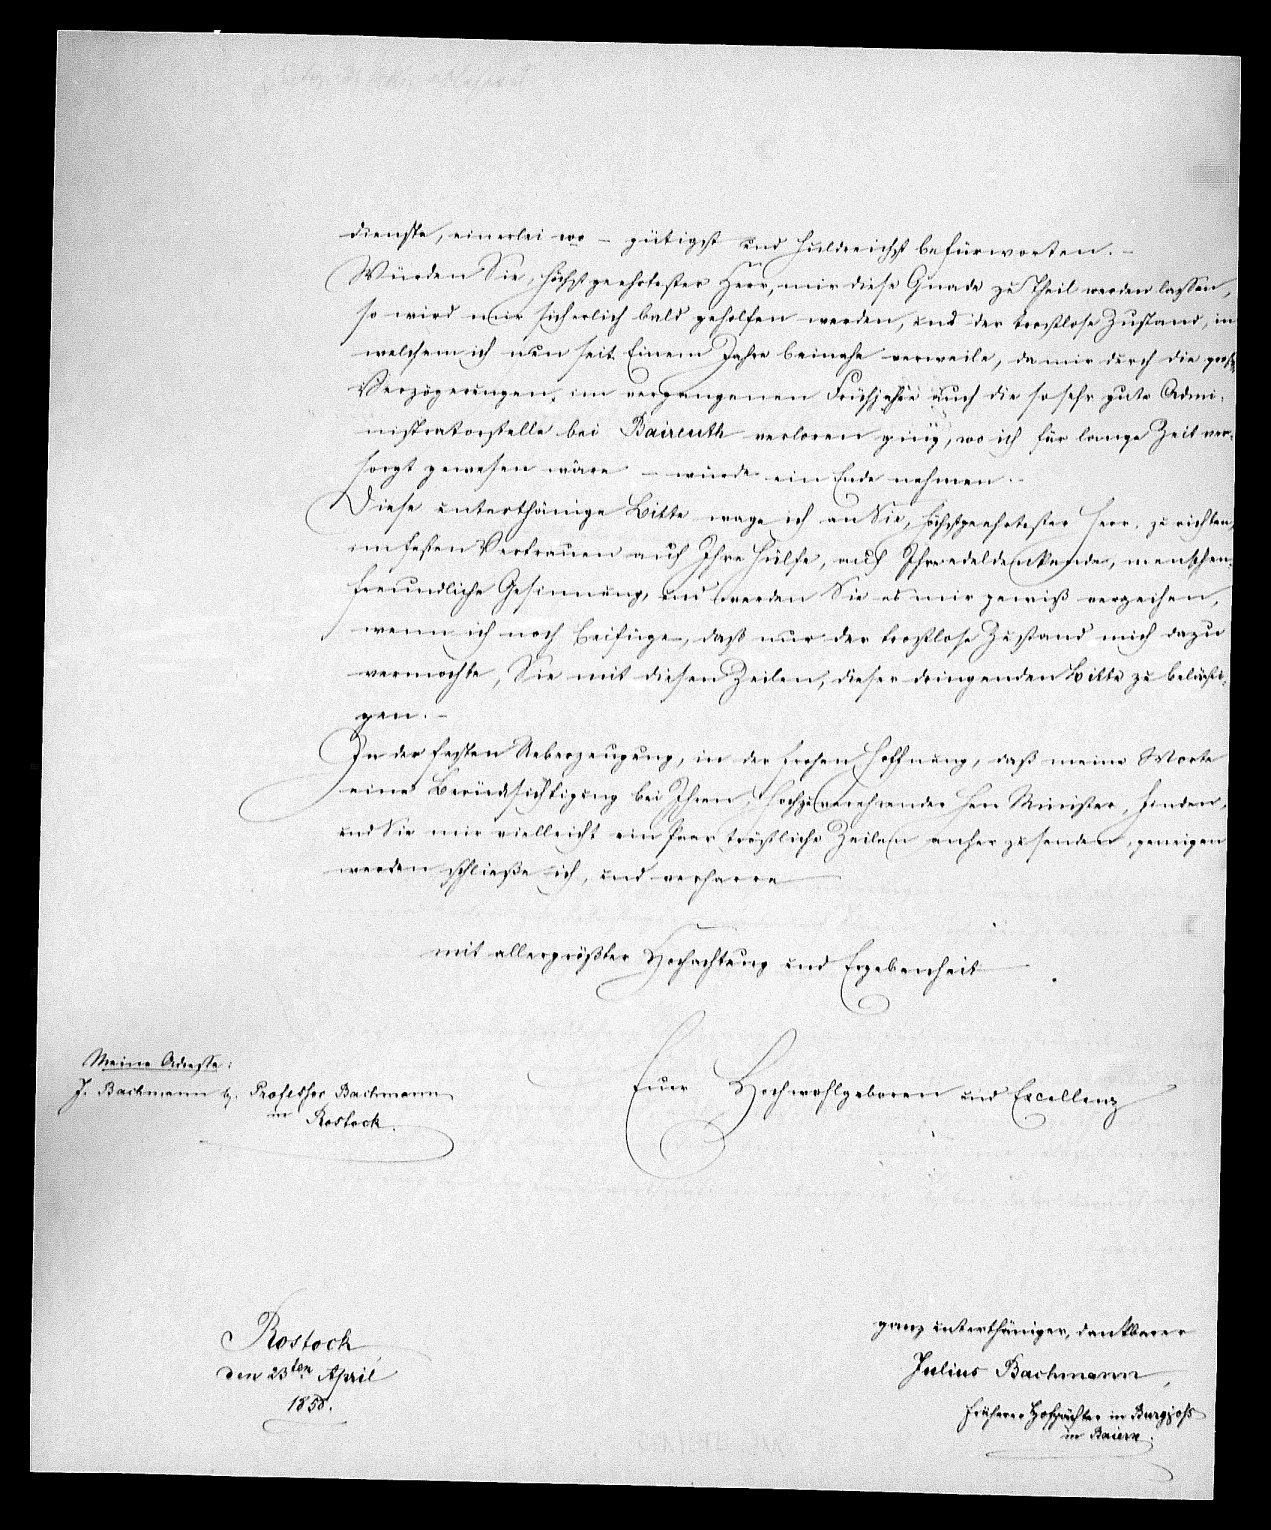 dienste, einerlei wo – gütigst und huldreichst befürworten. –
Würden Sie, höchstgeehrtester Herr, mir diese Gnade zu Theil werden lassen,
so wird mir sicherlich bald geholfen werden, und der trostlose Zustand, in
welchem ich nun seit Einem Jahre beinahe verweile, da mir durch die große
Verzögerungen, im vergangenen Frühjahre auch die so sehr gute Admi-
nistratorstelle bei Baireuth verloren ging, wo ich für lange Zeit ver-
sorgt gewesen wäre – würde ein Ende nehmen. –
Diese unterthänige Bitte wage ich an Sie, höchstgeehrtester Herr, zu richten,
im festen Vertrauen auf Ihre Hülfe, auf Ihre edeldenkende, menschen-
freundliche Gesinnung, und werden Sie es mir gewiß verzeihen,
wenn ich noch beifüge, daß nur der trostlose Zustand mich dazu
vermochte, Sie mit diesen Zeilen, dieser dringenden Bitte zu belästi-
gen. –
In der festen Ueberzeugung, in der frohen Hoffnung, daß meine Worte
eine Berücksichtigung bei Ihnen, hochzuverehrender Herr Minister, finden,
und Sie mir vielleicht ein Paar tröstliche Zeilen anher zu senden, geneigen
werden schließe ich, und verharre
mit allergrößter Hochachtung und Ergebenheit
Meine Adresse:
J. Bachmann b. Professor Bachmann
in Rostock.
Euer Hochwohlgeboren und Excellenz
Rostock
den 23ten April
1858.
ganz unterthäniger, dankbarer
Julius Bachmann,
früherer Hofpächter in Burgjoß
in Baiern.